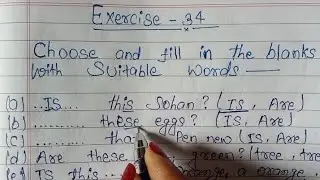 Exercise - 34
Choose and fill in the blanks
with Suitable words
(a) ..IS... this Sohan? (IS, Are)
(b) ......... these eggs? (IS, Are)
(c) ......... Pen new (IS, Are)
(d) Are these green? (tree,
(e) IS this orange